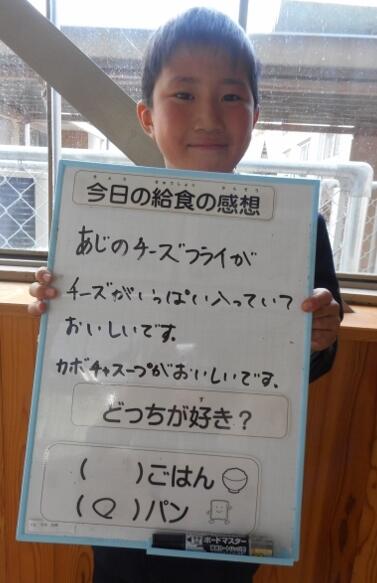 今日の給食の感想
あじのチーズフライが
チーズがいっぱい入っていて
おいしいです。
カボチャスープがおいしいです。
どっちが好き?
( )ごはん
(○)パン
ボードマスター